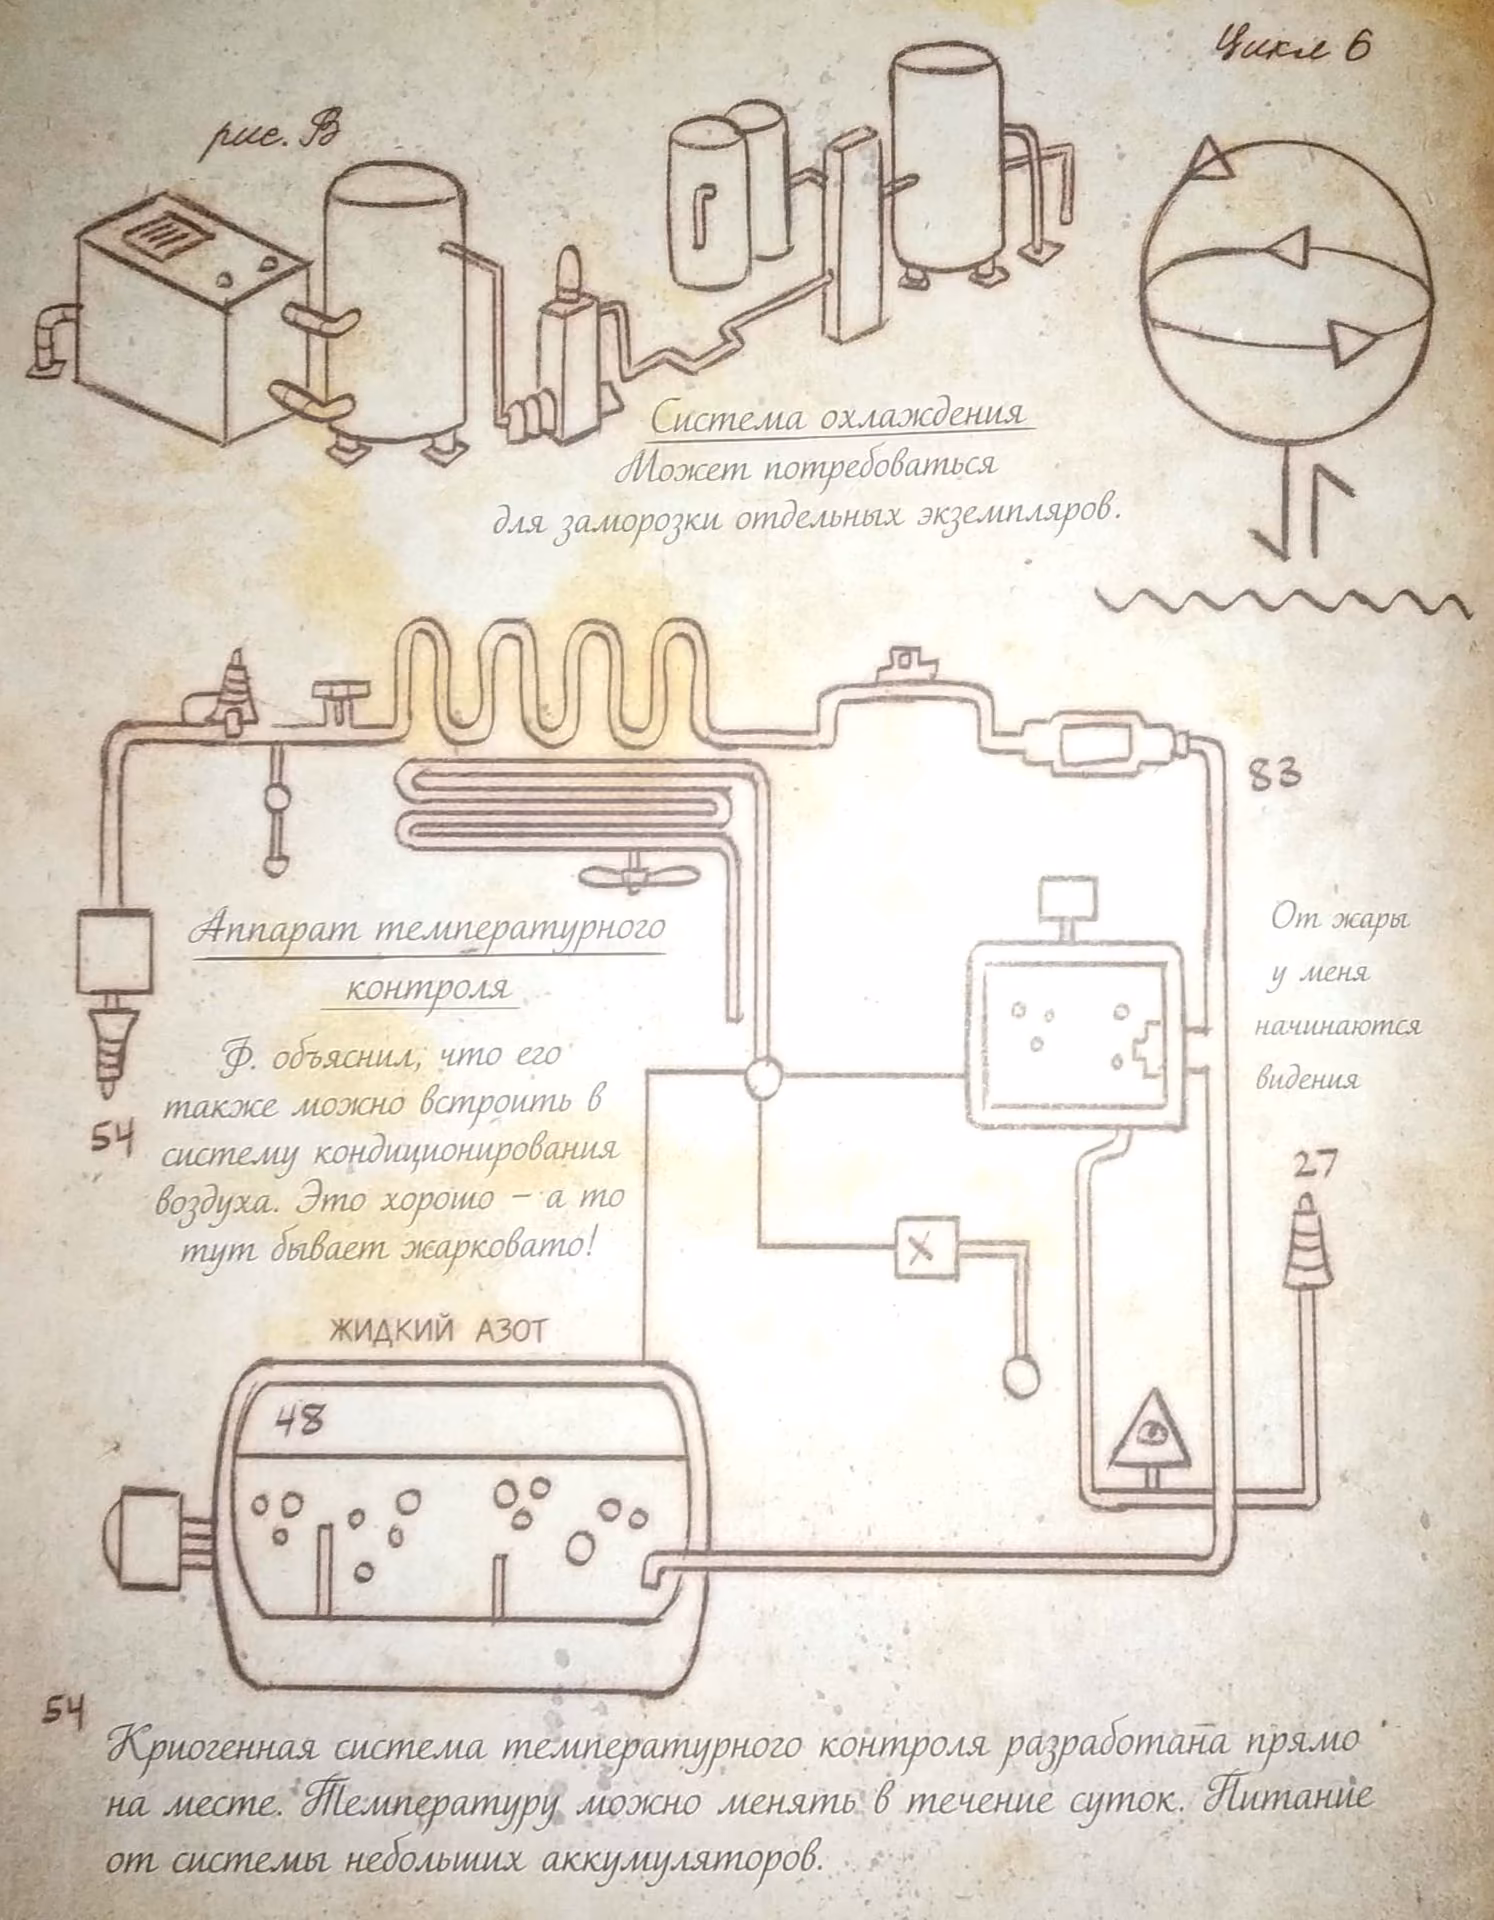 Цикл 6
рис. В
Система охлаждения
Может потребоваться
для заморозки отдельных экземпляров.
83
Аппарат температурного
контроля
От жары
у меня
начинаются
видения
Ф. объяснил, что его
также можно встроить в
систему кондиционирования
воздуха. Это хорошо – а то
тут бывает жарковато!
54
27
X
ЖИДКИЙ АЗОТ
48
54
Криогенная система температурного контроля разработана прямо
на месте. Температуру можно менять в течение суток. Питание
от системы небольших аккумуляторов.